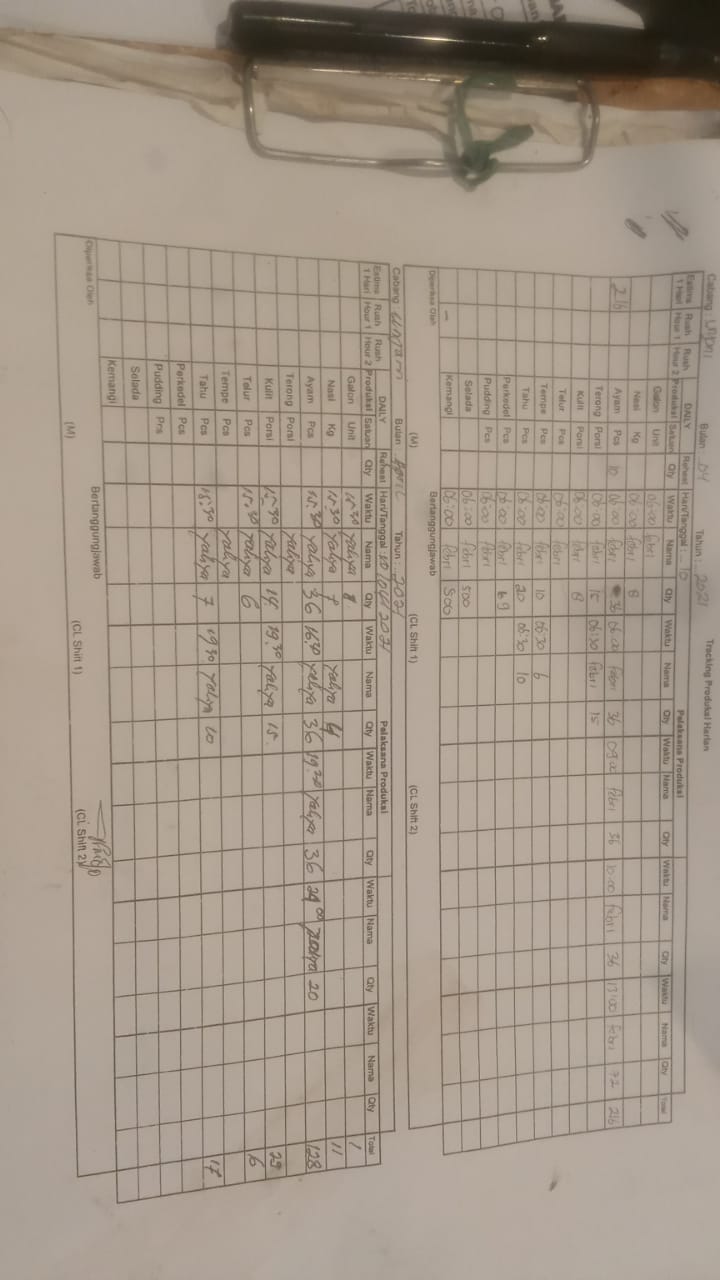 Tracking Produksi Harian
Cabang : Bulan : 04 Tahun : 2021
DAILY Reheat Hari/Tanggal : 10 Pelaksana Produksi
Estima 1 Hari Rush Hour 1 Rush Hour 2 Produksi Satuan Qty Waktu Nama Qty Waktu Nama Qty Waktu Nama Qty Waktu Nama Qty Waktu Nama Qty Total
Galon Unit 06:00 febri
Nasi Kg 06:00 febri 8
216 Ayam Pcs 10 06:00 febri 36 06:00 febri 36 09:00 febri 36 10:00 febri 36 13:00 febri 72 216
Terong Porsi 06:00 febri 15 06:30 febri 15
Kulit Porsi 06:00 febri 8
Telur Pcs 06:00 febri
Tempe Pcs 06:00 febri 10 06:30 6
Tahu Pcs 06:00 febri 20 06:30 10
Perkedel Pcs 06:00 febri 69
Pudding Pcs 06:00 febri
Selada 06:00 febri 500
Kemangi 06:00 febri 500
Diperiksa Oleh Bertanggungjawab
(M) (CL Shift 1) (CL Shift 2)
Cabang : untan Bulan : April Tahun : 2021
DAILY Reheat Hari/Tanggal : 10/04/2021 Pelaksana Produksi
Estima 1 Hari Rush Hour 1 Rush Hour 2 Produksi Satuan Qty Waktu Nama Qty Waktu Nama Qty Waktu Nama Qty Waktu Nama Qty Waktu Nama Qty Total
Galon Unit 15.30 yahya 1
Nasi Kg 15.30 yahya 7 yahya 4 11
Ayam Pcs 15.30 yahya 36 16.30 yahya 36 19.30 yahya 36 yahya 20 128
Terong Porsi yahya
Kulit Porsi 15.30 yahya 14 19.30 yahya 15 29
Telur Pcs 15.30 yahya 6 6
Tempe Pcs yahya
Tahu Pcs 15.30 yahya 7 19.30 yahya 10 17
Perkedel Pcs
Pudding Prs
Selada
Kemangi
Diperiksa Oleh Bertanggungjawab
(M) (CL Shift 1) (CL Shift 2)